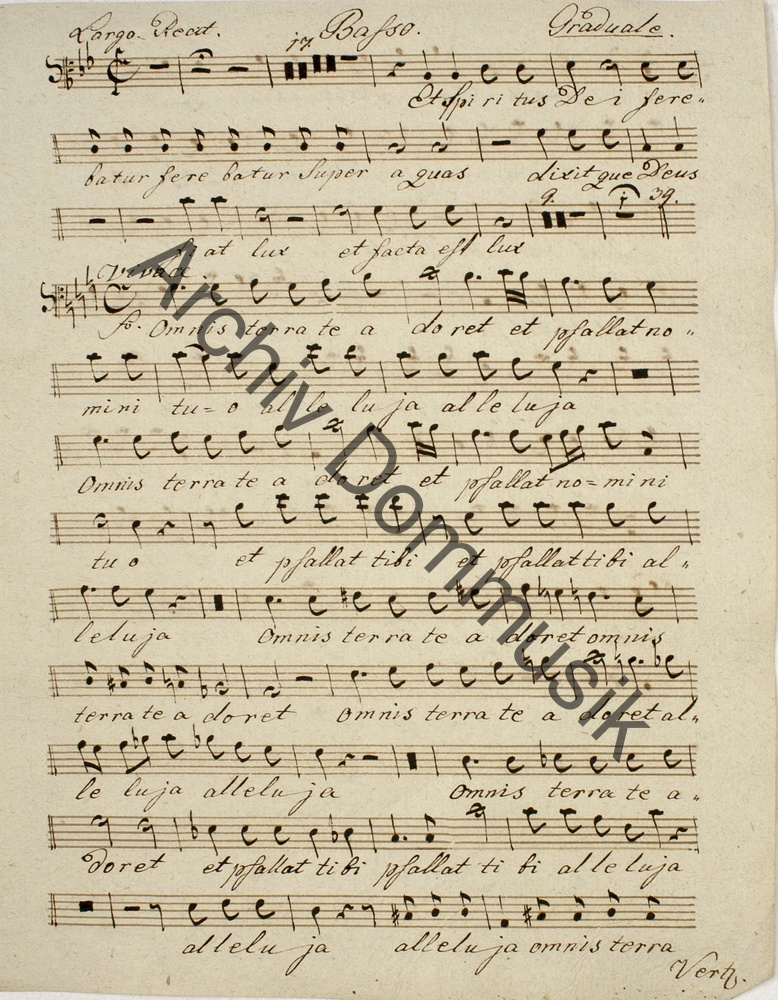 Largo. Recit. Basso. Graduale.
17.
Et Spi ri tus De i fere-
batur fere batur Super a quas dixitque Deus
9. 39.
fi at lux et facta est lux
Vivace.
fo. Omnis terra te a do ret et psallat no-
mini tu=o al le lu ja al le lu ja
Omnis terra te a do ret et psallat no=mi ni
tu o et psallat tibi et psallat tibi al-
leluja Omnis terra te a doret omnis
terra te a doret omnis terra te a doret al-
le luja alleluja omnis terra te a-
doret et psallat tibi psallat ti bi al le luja
allelu ja allelu ja omnis terra
Vert.
Archiv Dommusik